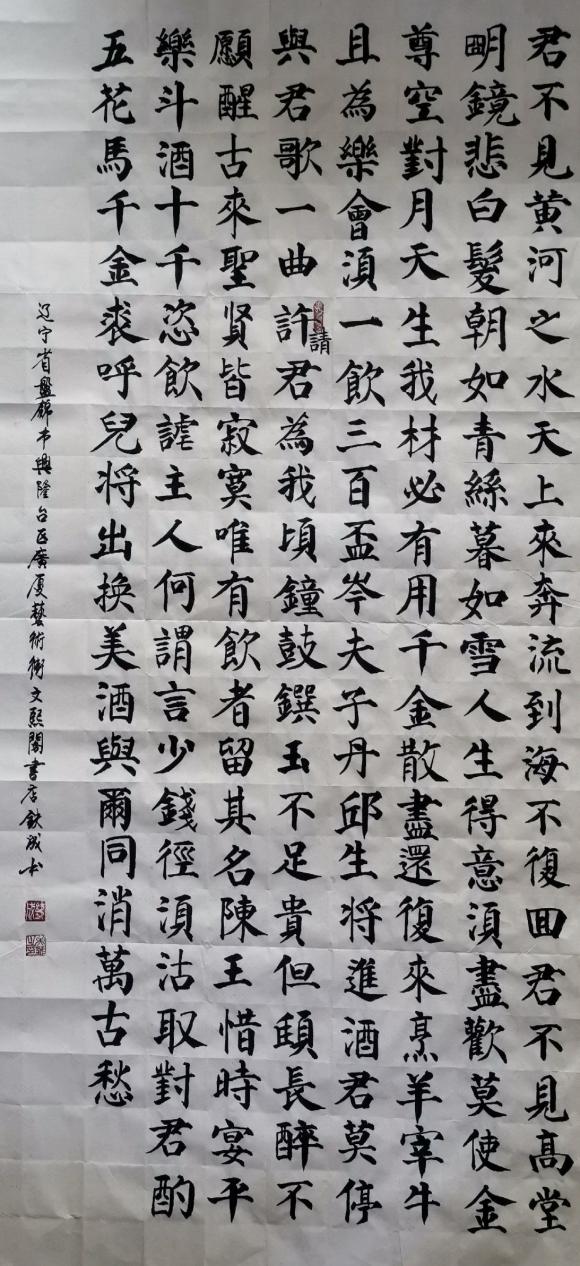 君不見黄河之水天上來奔流到海不復回君不見高堂
明鏡悲白髮朝如青絲暮如雪人生得意須盡歡莫使金
尊空對月天生我材必有用千金散盡還復來烹羊宰牛
且為樂會須一飲三百盃岑夫子丹邱生将進酒君莫停
請
與君歌一曲許君為我頃鐘鼓鐉玉不足貴但願長醉不
願醒古來聖賢皆寂寞唯有飲者留其名陳王惜時宴平
樂斗酒十千恣飲謔主人何謂言少錢徑須沽取對君酌
五花馬千金裘呼兒将出换美酒與爾同消萬古愁
辽宁省盤錦市興隆台区廣厦藝術街文熙閣書店成书